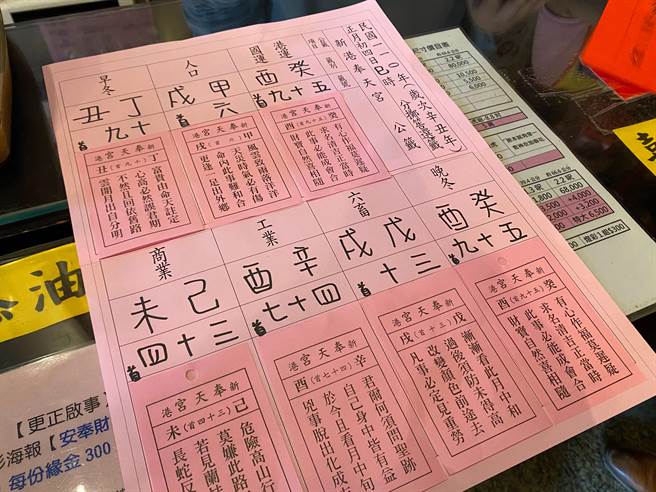 民國一一〇年 歲次辛丑年
正月初四日巳時 分擲筊造籤
新港奉天宮 公籤
港運
國運
癸酉
九十五首
人口
甲戌
六首
早冬
丁丑
九十首
新港奉天宮
癸(首五十九)酉
有心作福莫遲疑
求名清吉正當時
此事必能成會合
財寶自然喜相隨
新港奉天宮
甲(首六)戌
風雲致雨落洋洋
天災時氣必有傷
命內此事難和合
更逢一足出外鄉
新港奉天宮
丁(首九十)丑
富貴由命天註定
心高必然誤君期
不然且回依舊路
雲開月出自分明
晚冬
癸酉
九十五首
六畜
戊戌
十三首
工業
辛酉
七十四首
商業
己未
四十三首
新港奉天宮
癸(首五十九)酉
有心作福莫遲疑
求名清吉正當時
此事必能成會合
財寶自然喜相隨
新港奉天宮
戊(首三十)戌
漸漸看此月中和
過後須防未得高
改變顏色前途去
凡事必定見重勞
新港奉天宮
辛(首四十七)酉
君爾何須問聖跡
自己身中皆有益
於今且看月中旬
凶事脫出化成吉
新港奉天宮
己(首三十四)未
危險高山行
莫嫌此路
若見蘭
長蛇反
油
【更正啟事】
海報【安奉財
每份緣金300